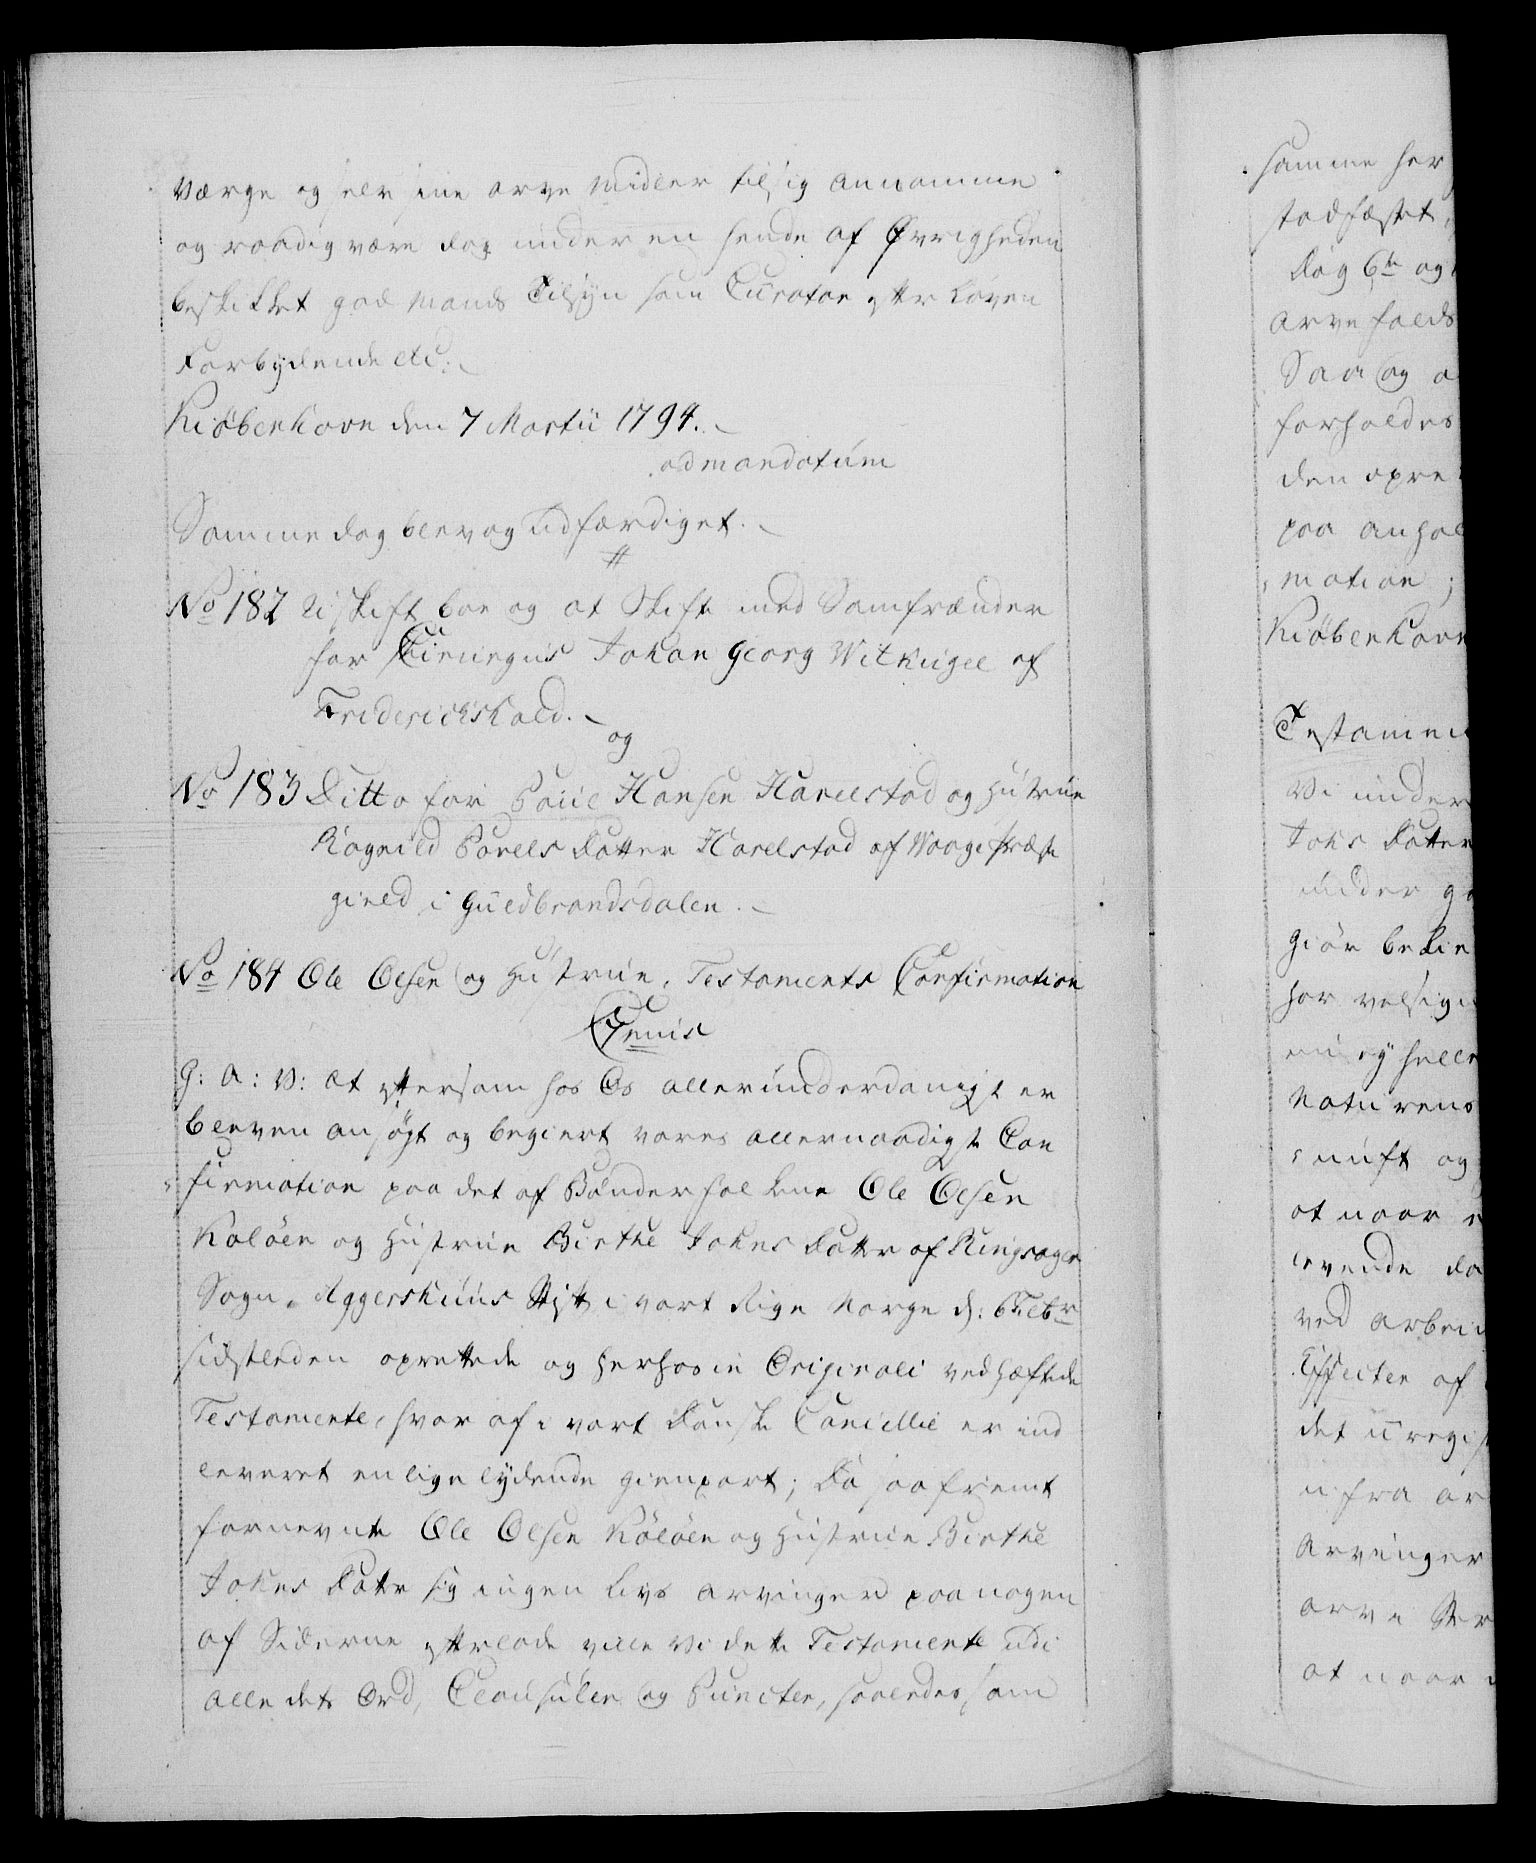 Værge og selv sine arve Midler til sig annamme
og raadig være dog under en hende af Øvrigheden
beskikket god Mands Tilsyn som Curator efter Loven
Forbydende etc.
Kiøbenhavn den 7 Martii 1794.
ad mandatum
Samme dag blev og udfærdiget.
No 182 Uskift boe og at Skifte med Samfrænder
for Chirurgus Johan Georg Witkugel af
Friderichshald.
og
No 183 Ditto for Poul Hansen Harelstad og Hustrue
Ragnild Povels Datter Harelstad af Vaage Præste
gield i Guldbrandsdalen.
No 184 Ole Olsen og Hustrue, Testaments Confirmation
Gratis
G: A: V: at eftersom hos Os allerunderdanigst er
bleven ansøgt og begiert vores allernaadigste Con
firmation paa det af Bønderfolkene Ole Olsen
Koløen og Hustrue Birthe Johns Datter af Ringsager
Sogn, Aggershuus Stift i vort Rige Norge d: 6 Febr
sidstleden oprettede og herhos in Originali vedhæftede
Testamente, hvor af i vort Danske Cancellie er ind
leveret en lige lydende Gienpart; Da saafremt
fornevnte Ole Olsen Koløen og Hustrue Birthe
Johns Datter sig ingen Livs Arvinger paa nogen
af Siderne efterlade ville Vi dette Testamente udi
alle dets Ord, Clausuler og Puncter, saaledes som
samme her
stadfæstet,
Dog 6te og
Arvefalds
Saa og a
forholdes
den opre
paa anhol
mation;
Kiøbenhavn
Testamen
Vi under
Johs Datter
under g
giør bekie
har velsign
mi ey helle
Naturens
nuft og
at naar
levende da
ved arbei
Effecter af
det uregi
n fra ar
Arvinger
arve
at naar